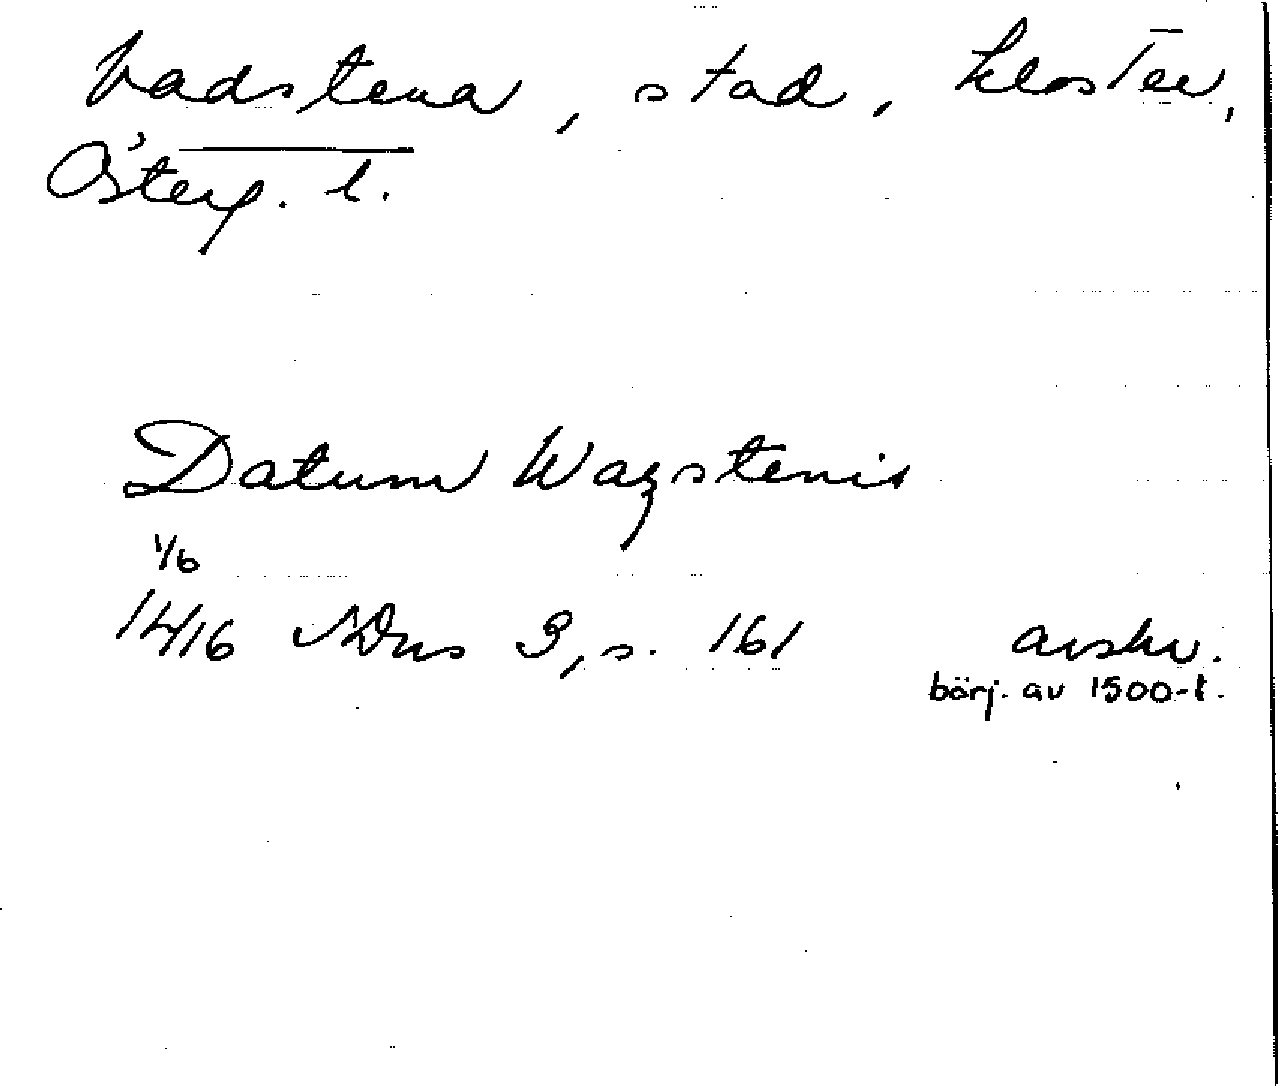 Vadstena, stad, kloster,
Österg. l.
Datum Wazstenis
1/6
1416 SDns 3, s. 161 avskr.
börj. av 1500-t.